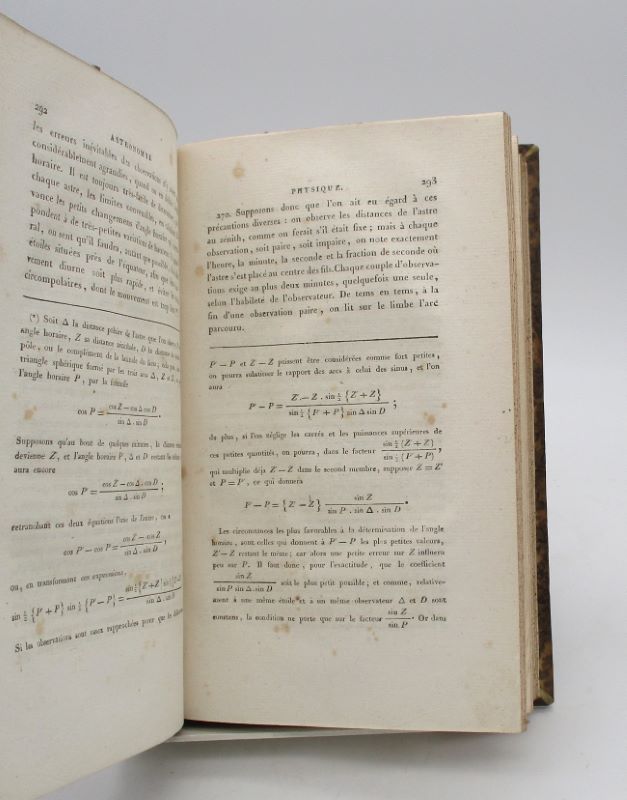 292
ASTRONOMIE
les erreurs inévitables des observations s'y
considérablement agrandies, quand on en
horaire. Il est toujours très-facile de déterminer
chaque astre, les limites convenables, en
vance les petits changemens d'angle horaire
pondent à de très-petites variations de hauteur
ral, on sent qu'il faudra, autant que possible
étoiles situées près de l'équateur, afin que
vement diurne soit plus rapide, et éviter les
circompolaires, dont le mouvement est trop lent
(*) Soit Δ la distance polaire de l'astre que l'on
angle horaire, Z sa distance zénithale, D la distance du
pôle, ou le complément de la latitude du lieu;
triangle sphérique formé par les trois arcs Δ, Z
l'angle horaire P, par la formule
cos P = (cos Z – cos Δ cos D) / (sin Δ . sin D).
Supposons qu'au bout de quelques minutes, la distance
devienne Z', et l'angle horaire P', Δ et D restant les mêmes
aura encore
cos P' = (cos Z' – cos Δ . cos D) / (sin Δ . sin D);
retranchant ces deux équations l'une de l'autre, on a
cos P' – cos P = (cos Z' – cos Z) / (sin Δ . sin D);
ou, en transformant ces expressions,
sin ½ {P' + P} sin ½ {P' – P} = sin ½ {Z' + Z} sin ½ / (sin Δ . sin D)
Si les observations sont assez rapprochées pour que les différences
PHYSIQUE.
293
270. Supposons donc que l'on ait eu égard à ces
précautions diverses : on observe les distances de l'astre
au zénith, comme on ferait s'il était fixe ; mais à chaque
observation, soit paire, soit impaire, on note exactement
l'heure, la minute, la seconde et la fraction de seconde où
l'astre s'est placé au centre des fils. Chaque couple d'observa-
tions exige au plus deux minutes, quelquefois une seule,
selon l'habileté de l'observateur. De tems en tems, à la
fin d'une observation paire, on lit sur le limbe l'arc
parcouru.
P' – P et Z' – Z puissent être considérées comme fort petites,
on pourra substituer le rapport des arcs à celui des sinus, et l'on
aura
P' – P = (Z' – Z . sin ½ {Z' + Z}) / (sin ½ {P' + P} sin Δ sin D) ;
de plus, si l'on néglige les carrés et les puissances supérieures de
ces petites quantités, on pourra, dans le facteur sin ½ (Z' + Z) / sin ½ (P' + P),
qui multiplie déja Z' – Z dans le second membre, supposer Z = Z'
et P = P', ce qui donnera
P' – P = {Z' – Z} sin Z / (sin P . sin Δ . sin D).
Les circonstances les plus favorables à la détermination de l'angle
horaire, sont celles qui donnent à P' – P les plus petites valeurs,
Z' – Z restant le même ; car alors une petite erreur sur Z influera
peu sur P. Il faut donc, pour l'exactitude, que le coefficient
sin Z / (sin P sin Δ . sin D) soit le plus petit possible ; et comme, relative-
ment à une même étoile et à un même observateur Δ et D sont
constans, la condition ne porte que sur le facteur sin Z / sin P. Or dans